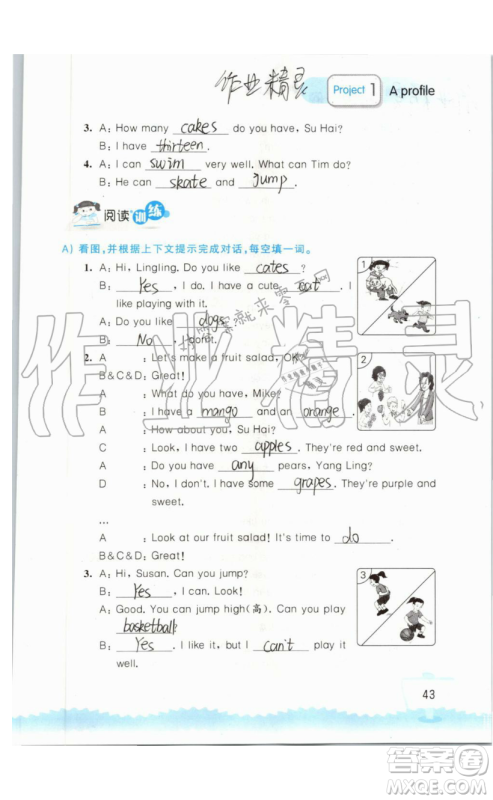 作业精灵
Project 1 A profile
3. A: How many cakes do you have, Su Hai?
B: I have thirteen.
4. A: I can swim very well. What can Tim do?
B: He can skate and jump.
阅读训练
A) 看图,并根据上下文提示完成对话,每空填一词。
1. A: Hi, Lingling. Do you like cates?
B: Yes, I do. I have a cute cat. I
like playing with it.
A: Do you like dogs?
B: No, I don't.
2. A : Let's make a fruit salad, OK?
B&C&D: Great!
A : What do you have, Mike?
B : I have a mango and an orange.
A : How about you, Su Hai?
C : Look, I have two apples. They're red and sweet.
A : Do you have any pears, Yang Ling?
D : No, I don't. I have some grapes. They're purple and
sweet.
...
A : Look at our fruit salad! It's time to do.
B&C&D: Great!
3. A: Hi, Susan. Can you jump?
B: Yes, I can. Look!
A: Good. You can jump high(高). Can you play
basketball
B: Yes. I like it, but I can't play it
well.
1
2
3
43
作业精灵
答案圈
MXQE.COM